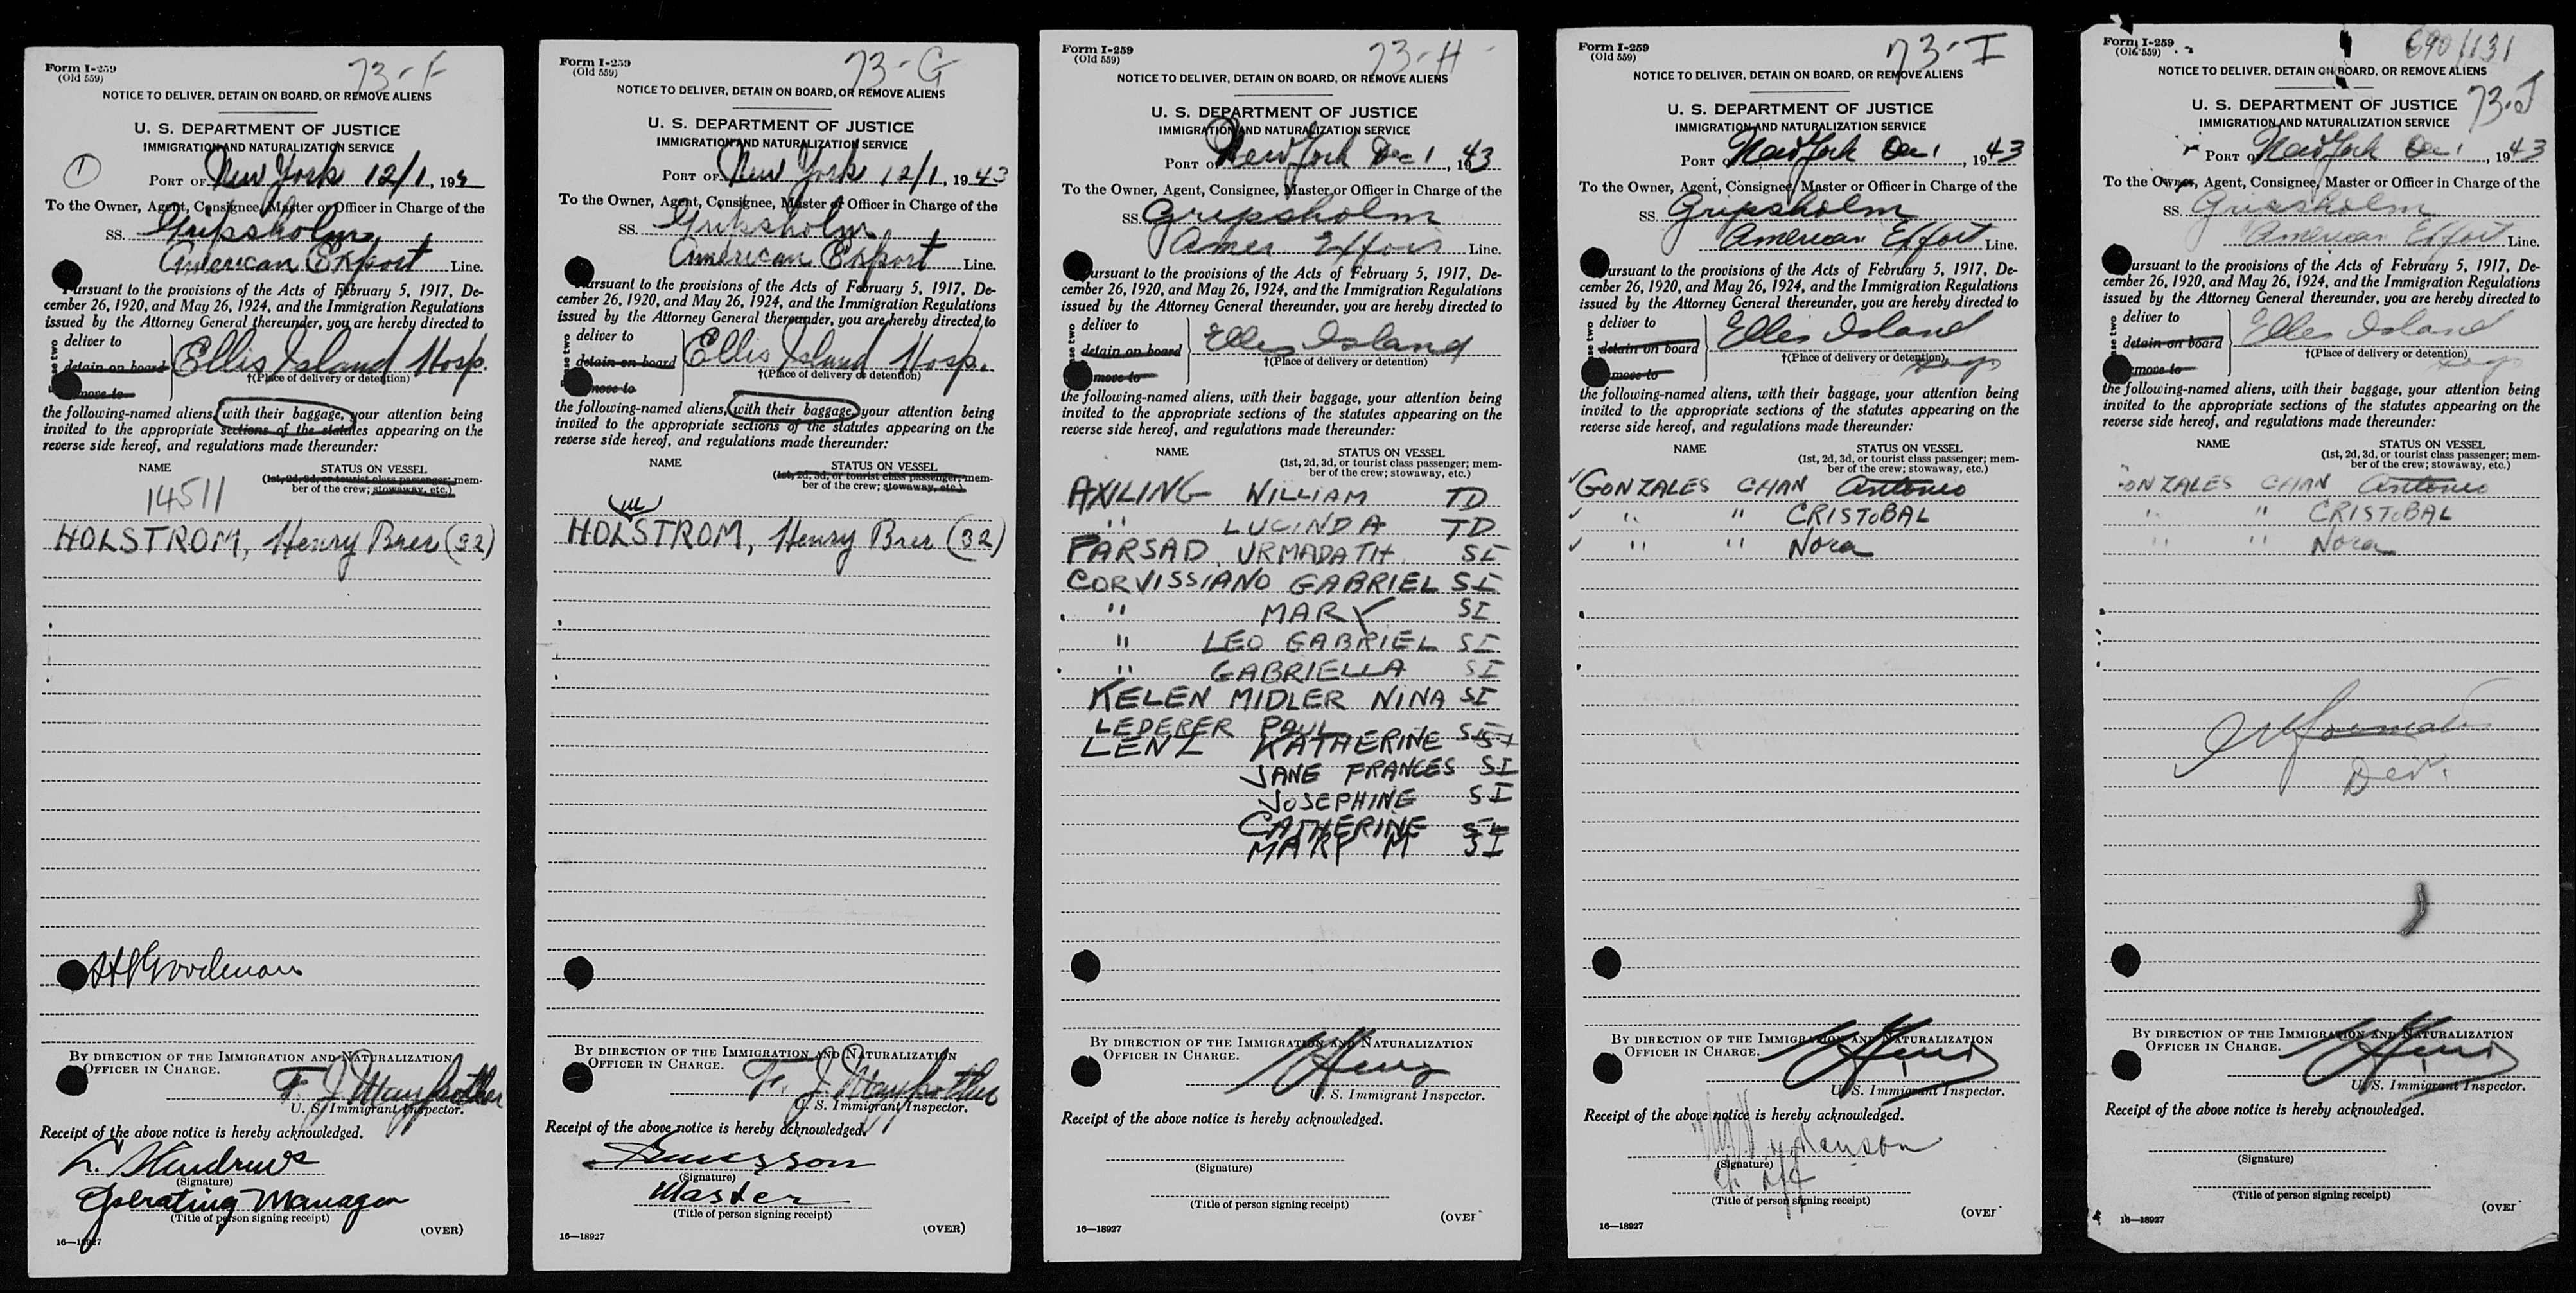 Form I-259
(Old 559)
73-F
NOTICE TO DELIVER, DETAIN ON BOARD, OR REMOVE ALIENS
U. S. DEPARTMENT OF JUSTICE
IMMIGRATION AND NATURALIZATION SERVICE
1
PORT OF New York 12/1, 19
To the Owner, Agent, Consignee, Master or Officer in Charge of the
SS. Gripsholm
American Export Line.
Pursuant to the provisions of the Acts of February 5, 1917, De-
cember 26, 1920, and May 26, 1924, and the Immigration Regulations
issued by the Attorney General thereunder, you are hereby directed to
deliver to
detain on board
Ellis Island Hosp.
†(Place of delivery or detention)
move to
the following-named aliens, with their baggage, your attention being
invited to the appropriate sections of the statutes appearing on the
reverse side hereof, and regulations made thereunder:
NAME STATUS ON VESSEL
(1st, 2d, 3d, or tourist class passenger; mem-
ber of the crew; stowaway, etc.)
14511
HOLSTROM, Henry (32)
Goodman
BY DIRECTION OF THE IMMIGRATION AND NATURALIZATION
OFFICER IN CHARGE.
F. J.
U. S. Immigrant Inspector.
Receipt of the above notice is hereby acknowledged.
(Signature)
Operating Manager
(Title of person signing receipt)
(OVER)
16—18927
Form I-259
(Old 559)
73-G
NOTICE TO DELIVER, DETAIN ON BOARD, OR REMOVE ALIENS
U. S. DEPARTMENT OF JUSTICE
IMMIGRATION AND NATURALIZATION SERVICE
PORT OF New York 12/1, 1943
To the Owner, Agent, Consignee, Master or Officer in Charge of the
SS. Gripsholm
American Export Line.
Pursuant to the provisions of the Acts of February 5, 1917, De-
cember 26, 1920, and May 26, 1924, and the Immigration Regulations
issued by the Attorney General thereunder, you are hereby directed to
deliver to
detain on board
Ellis Island Hosp.
†(Place of delivery or detention)
move to
the following-named aliens, with their baggage, your attention being
invited to the appropriate sections of the statutes appearing on the
reverse side hereof, and regulations made thereunder:
NAME STATUS ON VESSEL
(1st, 2d, 3d, or tourist class passenger; mem-
ber of the crew; stowaway, etc.)
HOLSTROM, Henry (32)
BY DIRECTION OF THE IMMIGRATION AND NATURALIZATION
OFFICER IN CHARGE.
F. J.
U. S. Immigrant Inspector.
Receipt of the above notice is hereby acknowledged.
(Signature)
Master
(Title of person signing receipt)
(OVER)
16—18927
Form I-259
(Old 559)
73-H
NOTICE TO DELIVER, DETAIN ON BOARD, OR REMOVE ALIENS
U. S. DEPARTMENT OF JUSTICE
IMMIGRATION AND NATURALIZATION SERVICE
PORT OF New York Dec 1, 1943
To the Owner, Agent, Consignee, Master or Officer in Charge of the
SS. Gripsholm
Amer Line.
Pursuant to the provisions of the Acts of February 5, 1917, De-
cember 26, 1920, and May 26, 1924, and the Immigration Regulations
issued by the Attorney General thereunder, you are hereby directed to
deliver to
detain on board
Ellis Island
†(Place of delivery or detention)
move to
the following-named aliens, with their baggage, your attention being
invited to the appropriate sections of the statutes appearing on the
reverse side hereof, and regulations made thereunder:
NAME STATUS ON VESSEL
(1st, 2d, 3d, or tourist class passenger; mem-
ber of the crew; stowaway, etc.)
AXILING WILLIAM TD
" LUCINDA TD
PARSAD URMADATH SI
CORVISSIANO GABRIEL SI
" MARY SI
" LEO GABRIEL SI
" GABRIELLA SI
KELEN MIDLER NINA SI
LEDERER PAUL SI
LENZ KATHERINE SI
JANE FRANCES SI
JOSEPHINE SI
CATHERINE SI
MARY M SI
BY DIRECTION OF THE IMMIGRATION AND NATURALIZATION
OFFICER IN CHARGE.
U. S. Immigrant Inspector.
Receipt of the above notice is hereby acknowledged.
(Signature)
(Title of person signing receipt)
(OVER
16—18927
Form I-259
(Old 559)
73-I
NOTICE TO DELIVER, DETAIN ON BOARD, OR REMOVE ALIENS
U. S. DEPARTMENT OF JUSTICE
IMMIGRATION AND NATURALIZATION SERVICE
PORT OF New York Dec 1, 1943
To the Owner, Agent, Consignee, Master or Officer in Charge of the
SS. Gripsholm
American Export Line.
Pursuant to the provisions of the Acts of February 5, 1917, De-
cember 26, 1920, and May 26, 1924, and the Immigration Regulations
issued by the Attorney General thereunder, you are hereby directed to
deliver to
detain on board
Ellis Island
†(Place of delivery or detention)
move to
the following-named aliens, with their baggage, your attention being
invited to the appropriate sections of the statutes appearing on the
reverse side hereof, and regulations made thereunder:
NAME STATUS ON VESSEL
(1st, 2d, 3d, or tourist class passenger; mem-
ber of the crew; stowaway, etc.)
✓ GONZALES CHAN Antonio
✓ " " CRISTOBAL
✓ " " Nora
BY DIRECTION OF THE IMMIGRATION AND NATURALIZATION
OFFICER IN CHARGE.
U. S. Immigrant Inspector.
Receipt of the above notice is hereby acknowledged.
(Signature)
(Title of person signing receipt)
(OVER
16—18927
Form I-259
(Old 559)
690/131
NOTICE TO DELIVER, DETAIN ON BOARD, OR REMOVE ALIENS
U. S. DEPARTMENT OF JUSTICE
73-J
IMMIGRATION AND NATURALIZATION SERVICE
PORT OF New York Dec 1, 1943
To the Owner, Agent, Consignee, Master or Officer in Charge of the
SS. Gripsholm
American Export Line.
Pursuant to the provisions of the Acts of February 5, 1917, De-
cember 26, 1920, and May 26, 1924, and the Immigration Regulations
issued by the Attorney General thereunder, you are hereby directed to
deliver to
detain on board
Ellis Island
†(Place of delivery or detention)
move to
the following-named aliens, with their baggage, your attention being
invited to the appropriate sections of the statutes appearing on the
reverse side hereof, and regulations made thereunder:
NAME STATUS ON VESSEL
(1st, 2d, 3d, or tourist class passenger; mem-
ber of the crew; stowaway, etc.)
GONZALES CHAN Antonio
" " CRISTOBAL
" " Nora
BY DIRECTION OF THE IMMIGRATION AND NATURALIZATION
OFFICER IN CHARGE.
U. S. Immigrant Inspector.
Receipt of the above notice is hereby acknowledged.
(Signature)
(Title of person signing receipt)
(OVER
16—18927